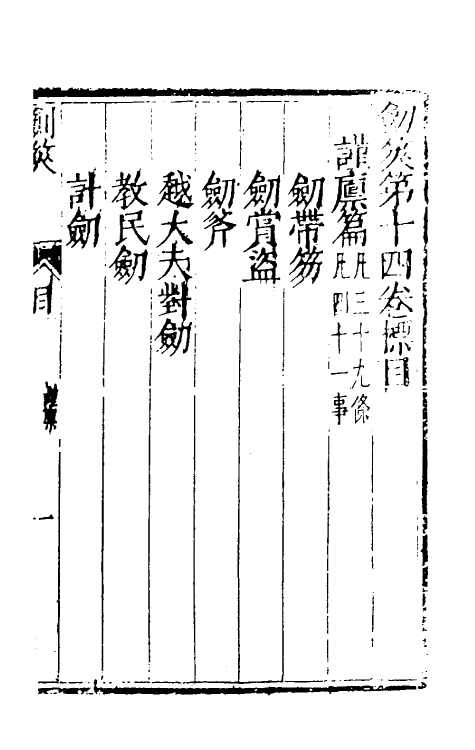 劒筴第十四卷標目
謹廪篇凡三十九條
凡四十一事
劒帶笏
劒賞盜
劒斧
越大夫對劒
教民劒
計劒
劒筴
目
一